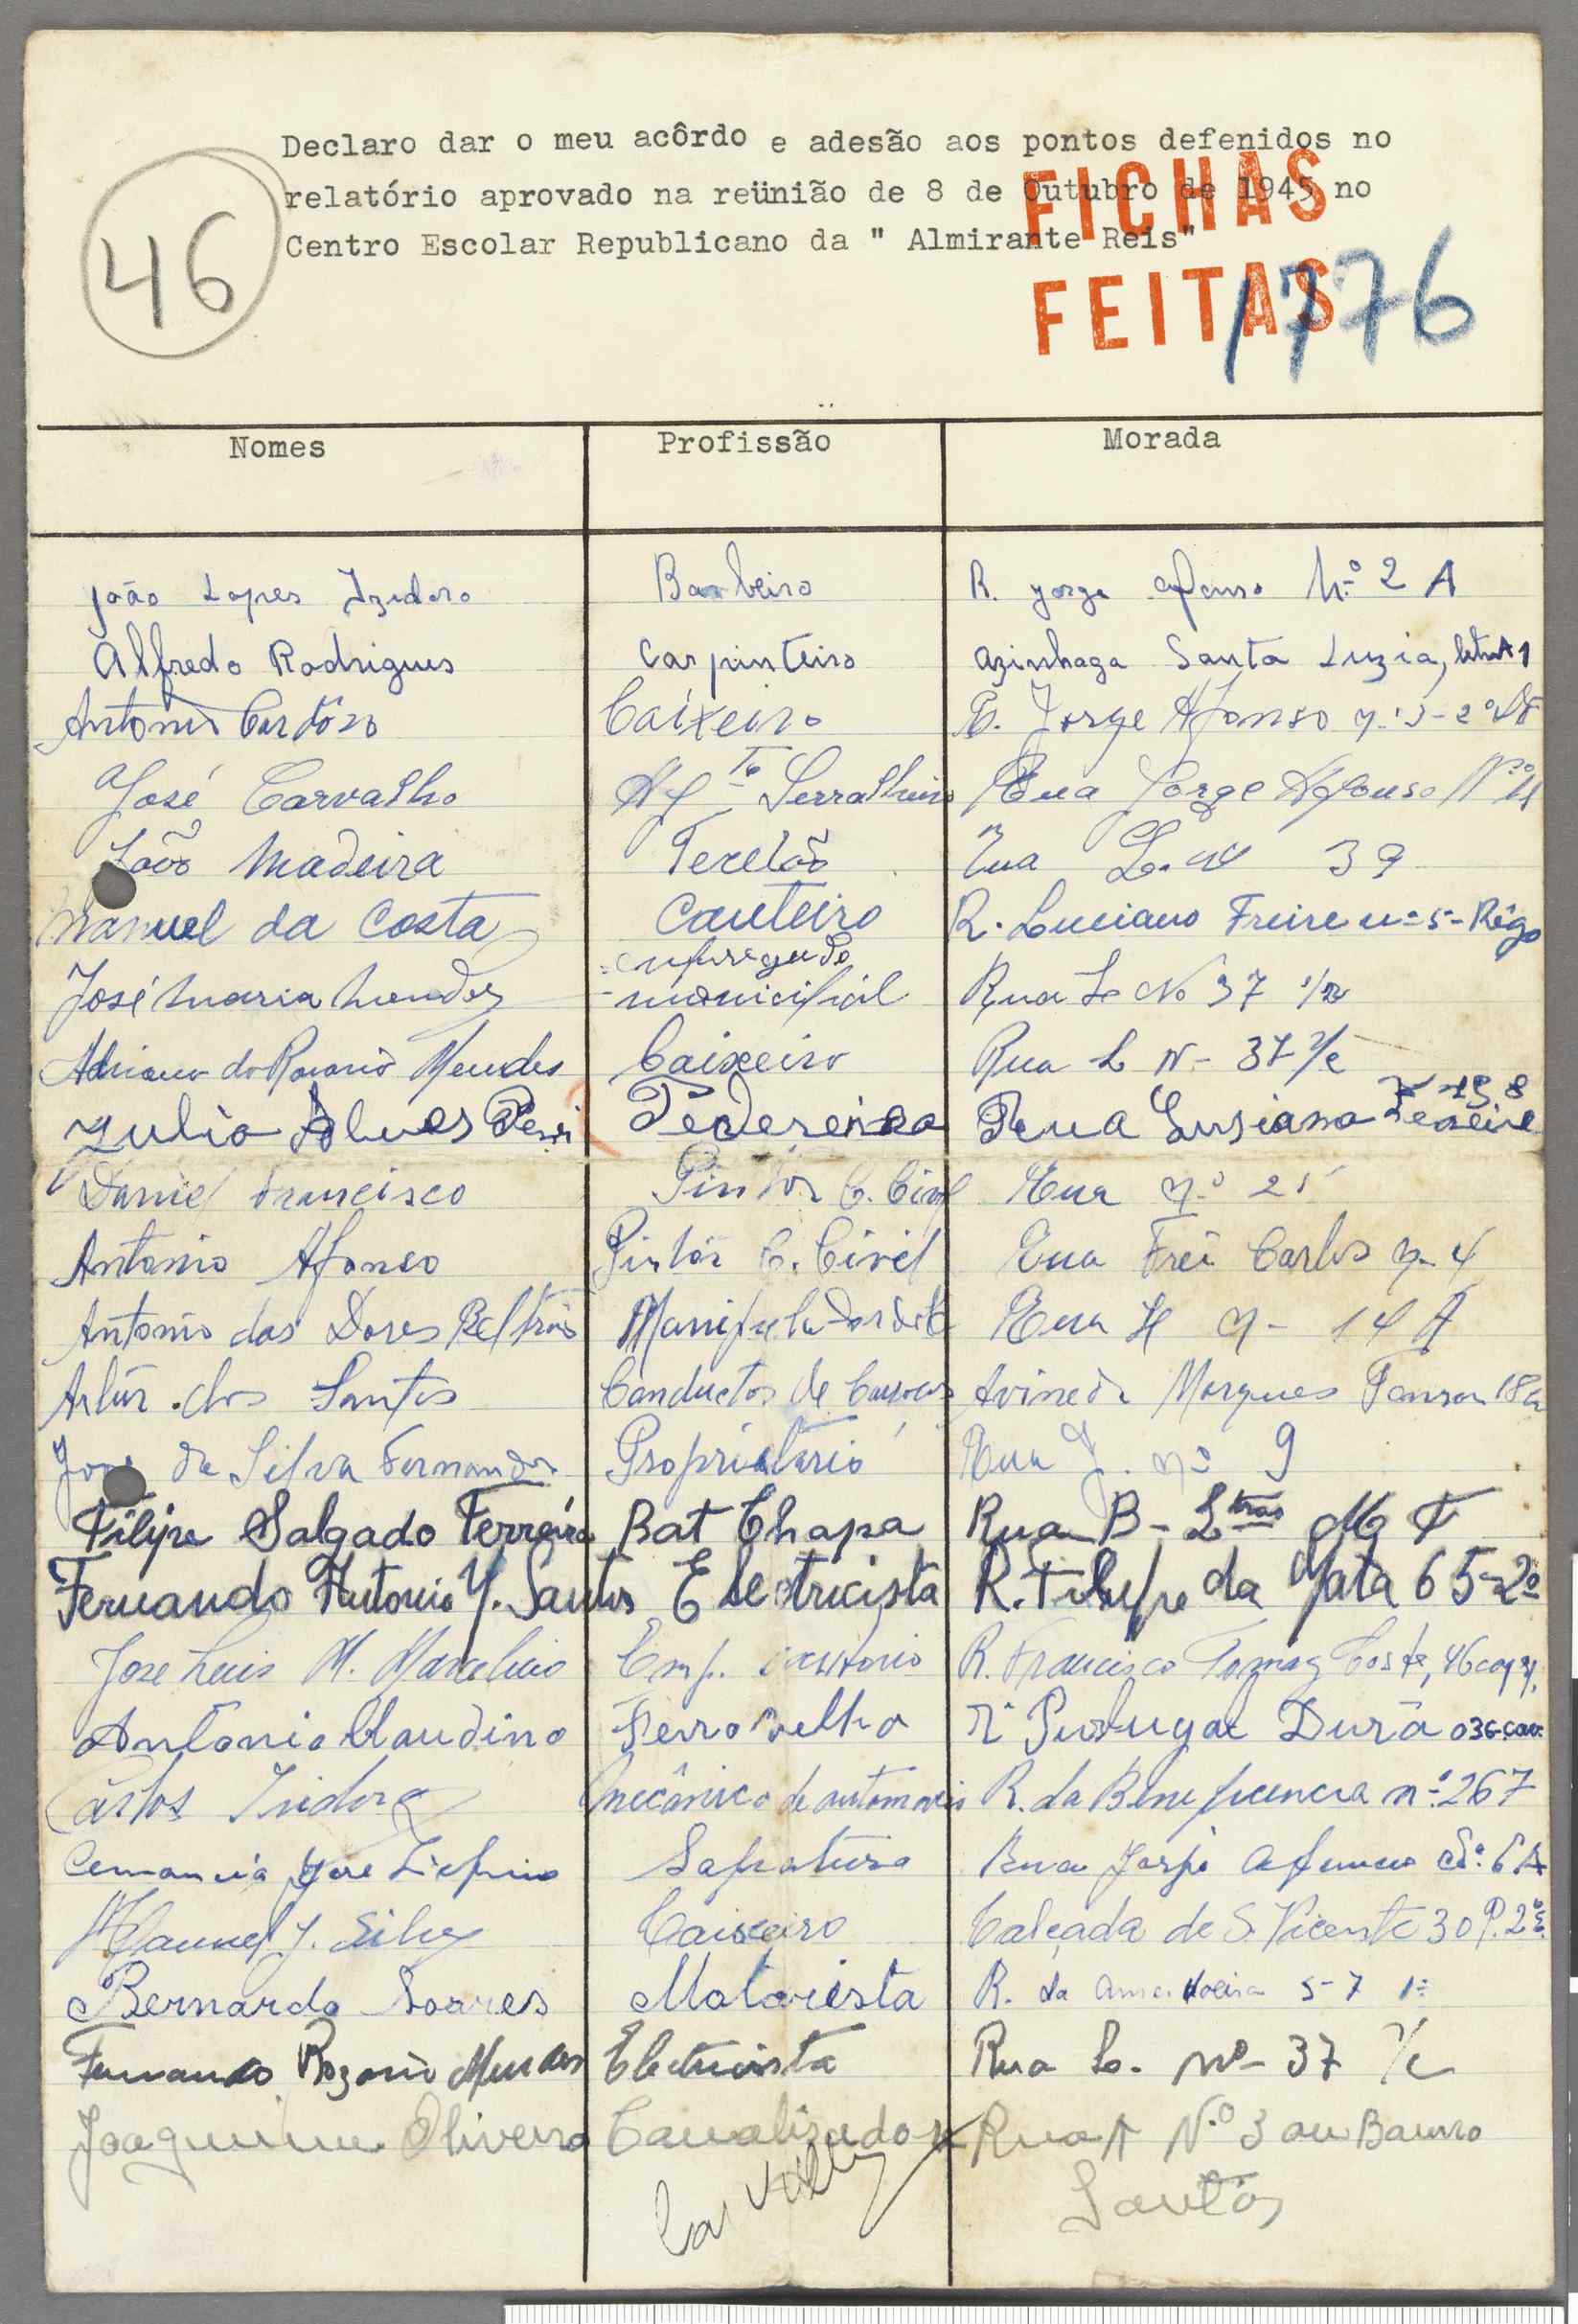 Declaro dar o meu acôrdo e adesão aos pontos defenidos no
relatório aprovado na reünião de 8 de Outubro de 1945 no
Centro Escolar Republicano da " Almirante Reis"
46
FICHAS
FEITAS
1776
Nomes Profissão Morada
João Lopes Izidoro Barbeiro R. Jorge Afonso N.º 2 A
Alfredo Rodrigues Carpinteiro Azinhaga Santa Luzia, letra A 1
Antonio Cardôzo Caixeiro R. Jorge Afonso n.º 3-2º
José Carvalho Serralheiro Rua Jorge Afonso Nº
João Madeira Tecelão Rua 39
Manuel da Costa Canteiro R. Luciano Freire nº 5- Rêgo
José Maria Mendes empregado municipal Rua L No 37
Adriano do Rosario Mendes Caixeiro Rua L N- 37 r/c
Julio Alves Pedereiro Rua Lusiano
Daniel Francisco Pintor C. Civil Rua n.º
Antonio Afonso Pintôr C. Civil Rua Frei Carlos n- 4
Antonio das Dores Beltrão Rua H n- 14 A
Artur dos Santos Conductor de Avineda Marques
da Silva Fernandes Proprietario Rua nº 9
Filipe Salgado Ferreira Bat Chapa Rua B- Ltras M F
Fernando Antonio J. Santos Electricista R. Filipe da Mata 65-2º
Jose Luis M. Marcelino Emp. R. Francisco Tomaz Costa, 46
Antonio Claudino Ferro velho Rª Purtugal Durão 36-cave
Carlos Isidoro Mecânico de automoveis R. da Beneficencia nº 267
Rua 6 A
Manuel J. Silva Caixeiro Calçada de S. Vicente 30
Bernardo Soares Motorista R. da Amendoeira 5-7 1º
Fernando Rozario Mendes Electricista Rua L. nº- 37 r/c
Joaquim Oliveira Canalizador Rua A Nº 3 au Bairro
Santos